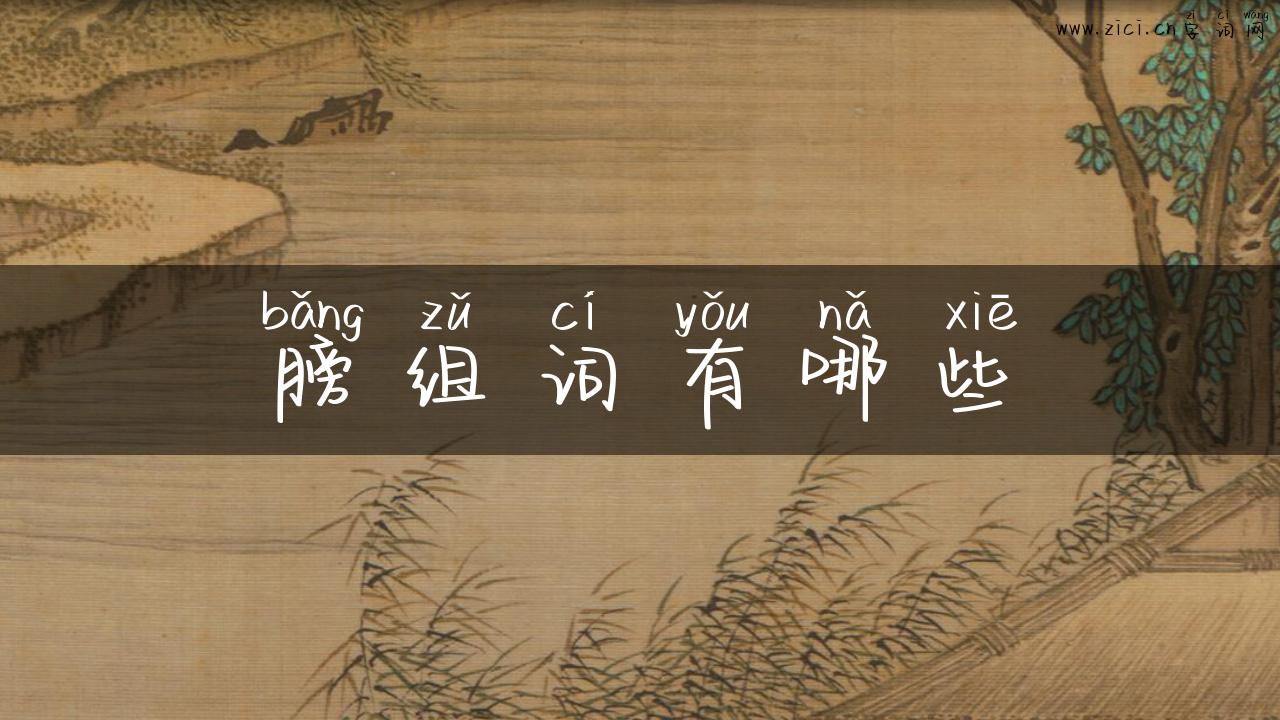 zì cí wǎng
www.zici.cn字词网
bǎng zǔ cí yǒu nǎ xiē
膀组词有哪些